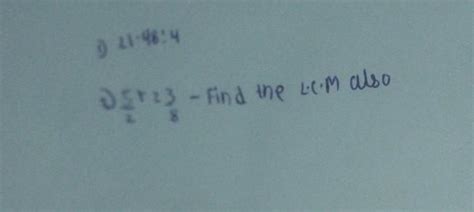 1) 21.48÷4
2) 5/2 + 2 3/8 - Find the L.C.M also